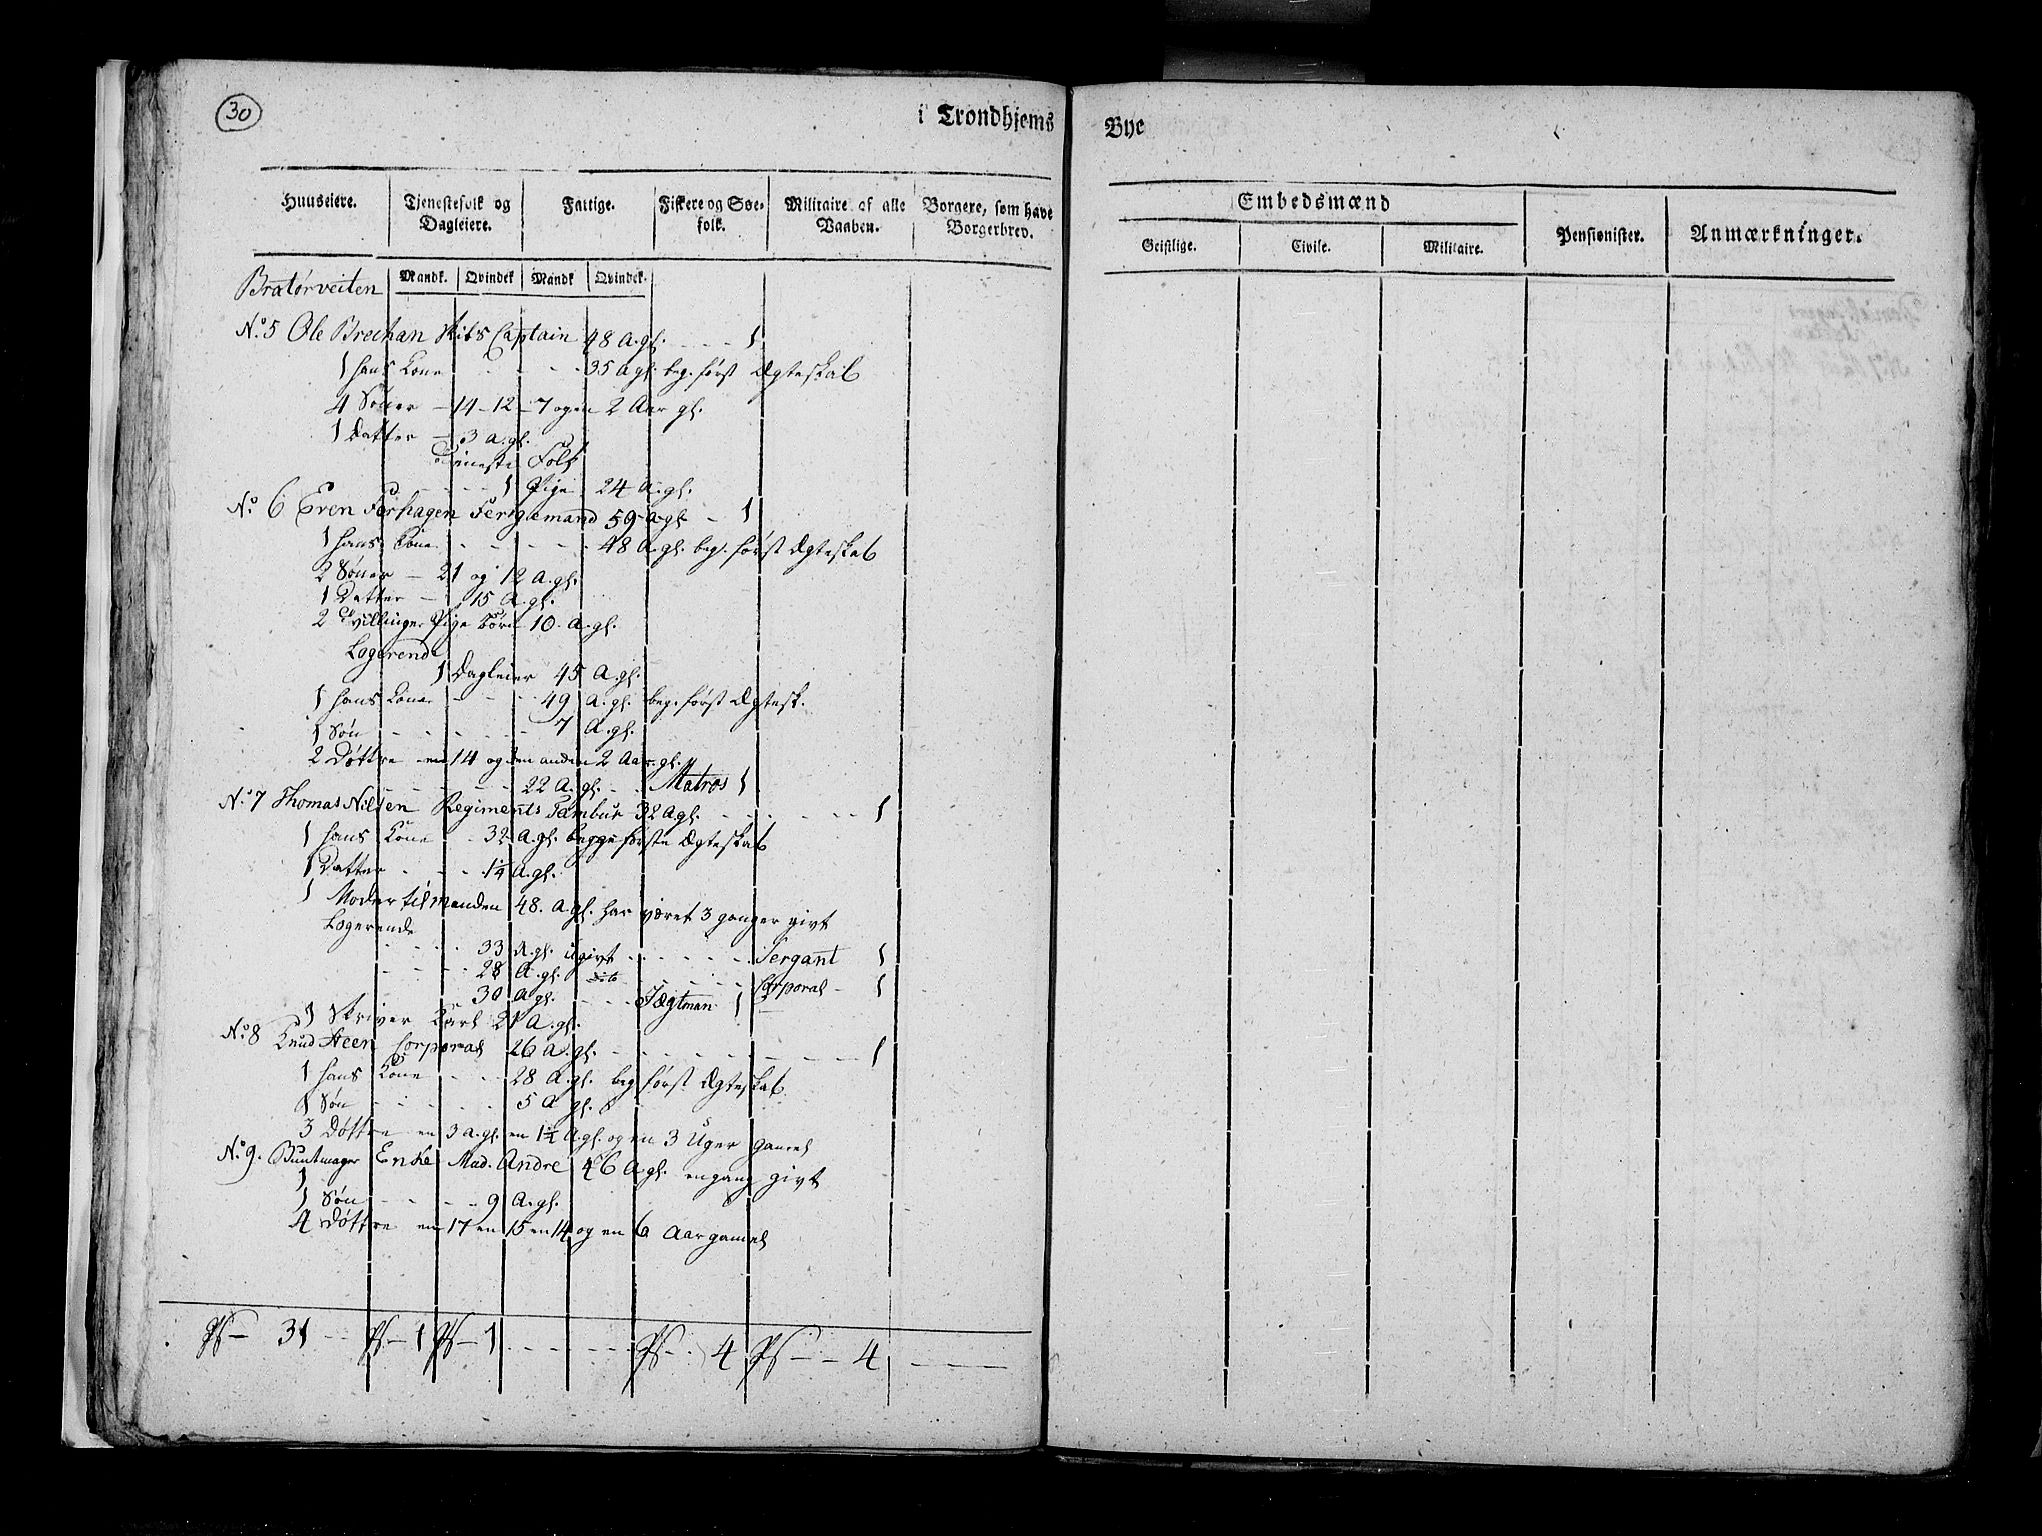 30
i Trondhjems Bye
Huuseiere. Tjenestefolk og Dagleiere. Fattige. Fiskere og Søefolk. Militaire af alle Vaaben. Borgere, som have Borgerbrev. Embedsmænd Pensionister. Anmærkninger.
Geistlige. Civile. Militaire.
Mandk. Qvindek Mandk Qvindek.
Bratørveiten
No. 5 Ole Brechan Skibs Captain 48 A. gl. - - - - 1
1 hans Kone - - - - 35 A gl. beg. først Ægteskab
4 Sønner - 14 - 12 - 7 og en 2 Aar gl.
1 Datter - 3 A. gl.
Tieneste Folk
- - - - 1 Pige 24 A. gl.
No. 6 Eren Forhagen Fergemand 59 A gl - 1
1 hans Kone - - - - - 48 A. gl. beg. først Ægteskab
2 Sønner - 21 og 12 A. gl.
1 Datter - 15 A. gl.
2 Tvillinger Pige Børn 10 A. gl.
Logerende
1 Dagleier 45 A. gl.
1 hans Kone - - - 49 A. gl. beg. først Ægtesk.
1 Søn - - - - - 7 A. gl.
2 Døttre en 14 og den anden 2 Aar gl.
- - - - 22 A. gl. - - Matros 1
No. 7 Thomas Nilsen Regiments Tambur 32 A gl. - - - - - - 1
1 hans Kone - - 32 A. gl. begge første Ægteskab
1 Datter - - - - 1/4 A. gl.
1 Moder til manden 48. A. gl. har været 3 ganger givt
Logerende
- - - - 33 A. gl. ugivt - - - - - - Sergant 1
- - - - 28 A. gl. dito - - - - Corporal - 1
- - 30 A gl. - - - Jægtman 1
1 Skriver Karl 21 A. gl.
No. 8 Knud Steen Corporal 26 A. gl. - - - - - - - - - 1
1 hans Kone - - - 28 A. gl. beg først Ægteskab.
1 Søn - - - - - 5 A gl.
3 Døttre en 3 A. gl. en 1 1/2 A gl. og en 3 Uger gamel
No. 9. Buntmager Enke Mad. Andre 46 A gl. engang givt
1
1 Søn - - - - 9 A. gl.
4 Døttre en 17 en 15 en 14 og en 6 Aar gamel
Ps - 31 - - Ps - 1 Ps - 1 - - - - - - Ps - - 4 Ps - - 4 - - - -